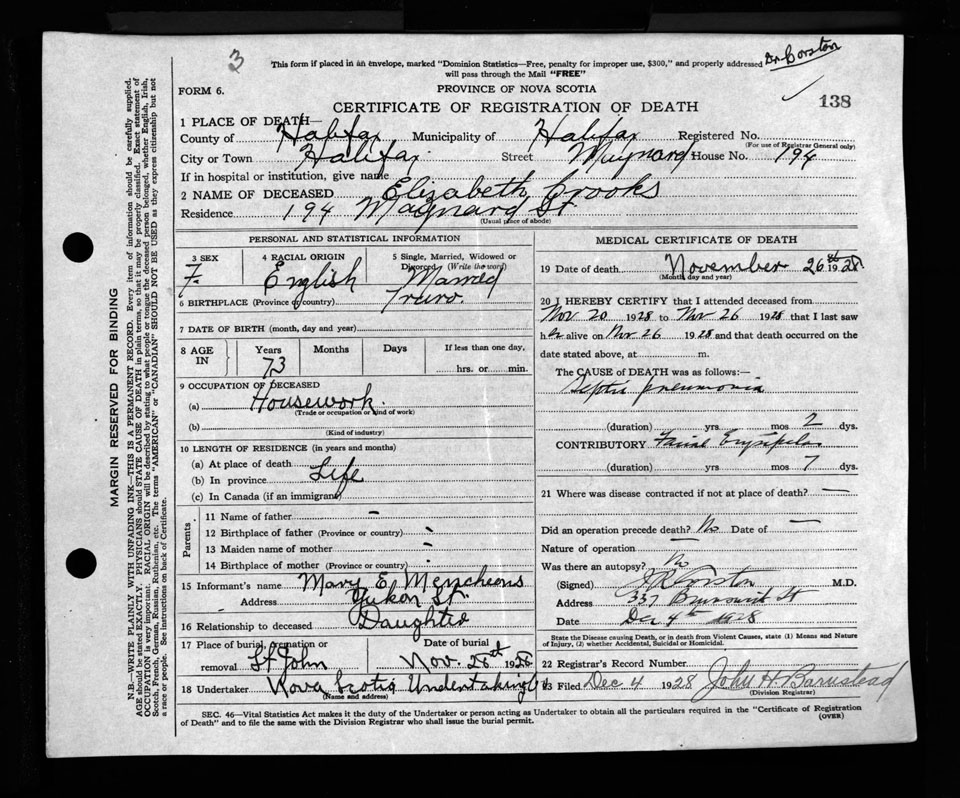 3
Dr. Corston
This form if placed in an envelope, marked "Dominion Statistics—Free, penalty for improper use, $300," and properly addressed
will pass through the Mail "FREE"
FORM 6.
PROVINCE OF NOVA SCOTIA
CERTIFICATE OF REGISTRATION OF DEATH
138
1 PLACE OF DEATH—
County of Halifax Municipality of Halifax Registered No.
(For use of Registrar General only)
City or Town Halifax Street Maynard House No. 194
If in hospital or institution, give name
2 NAME OF DECEASED Elizabeth Crooks
Residence 194 Maynard St
(Usual place of abode)
PERSONAL AND STATISTICAL INFORMATION
3 SEX 4 RACIAL ORIGIN 5 Single, Married, Widowed or
Divorced (Write the word)
F. English Married
6 BIRTHPLACE (Province or country) Truro.
7 DATE OF BIRTH (month, day and year)
8 AGE IN Years Months Days If less than one day,
73 hrs. or min.
9 OCCUPATION OF DECEASED
(a) Housework.
(Trade or occupation or kind of work)
(b)
(Kind of industry)
10 LENGTH OF RESIDENCE (in years and months)
(a) At place of death
(b) In province Life
(c) In Canada (if an immigrant)
Parents
11 Name of father -
12 Birthplace of father (Province or country) -
13 Maiden name of mother -
14 Birthplace of mother (Province or country) -
15 Informant's name Mary E.
Address Yukon St.
16 Relationship to deceased Daughter
17 Place of burial, cremation or Date of burial
removal St John Nov. 28th 1928
18 Undertaker Nova Scotia Undertaking Co
(Name and address)
MEDICAL CERTIFICATE OF DEATH
19 Date of death November 26th 1928
(Month, day and year)
20 I HEREBY CERTIFY that I attended deceased from
Nov 20 1928 to Nov 26 1928 that I last saw
her alive on Nov 26 1928 and that death occurred on the
date stated above, at m.
The CAUSE of DEATH was as follows:—
Septic pneumonia
(duration) yrs mos 2 dys.
CONTRIBUTORY Facial Erysipelas
(duration) yrs mos 7 dys.
21 Where was disease contracted if not at place of death? —
Did an operation precede death? No Date of —
Nature of operation —
Was there an autopsy? No
(Signed) Corston M.D.
Address 337 Brunswick St
Date Dec 4th 1928
State the Disease causing Death, or in death from Violent Causes, state (1) Means and Nature
of Injury, (2) whether Accidental, Suicidal or Homicidal.
22 Registrar's Record Number
23 Filed Dec 4 1928 John H. Barnstead
(Division Registrar)
SEC. 46—Vital Statistics Act makes it the duty of the Undertaker or person acting as Undertaker to obtain all the particulars required in the "Certificate of Registration
of Death" and to file the same with the Division Registrar who shall issue the burial permit.
(OVER)
MARGIN RESERVED FOR BINDING
N.B.—WRITE PLAINLY WITH UNFADING INK—THIS IS A PERMANENT RECORD. Every item of information should be carefully supplied.
AGE should be stated EXACTLY. PHYSICIANS should STATE CAUSE OF DEATH in plain terms, so that it may be properly classified. Exact statement of
OCCUPATION is very important. RACIAL ORIGIN will be described by stating to what people or tongue the deceased person belonged, whether English, Irish,
Scotch, French, German, Russian, Ruthenian, etc. The terms "AMERICAN" or "CANADIAN" SHOULD NOT BE USED as they express citizenship but not
a race or people. See instructions on back of Certificate.